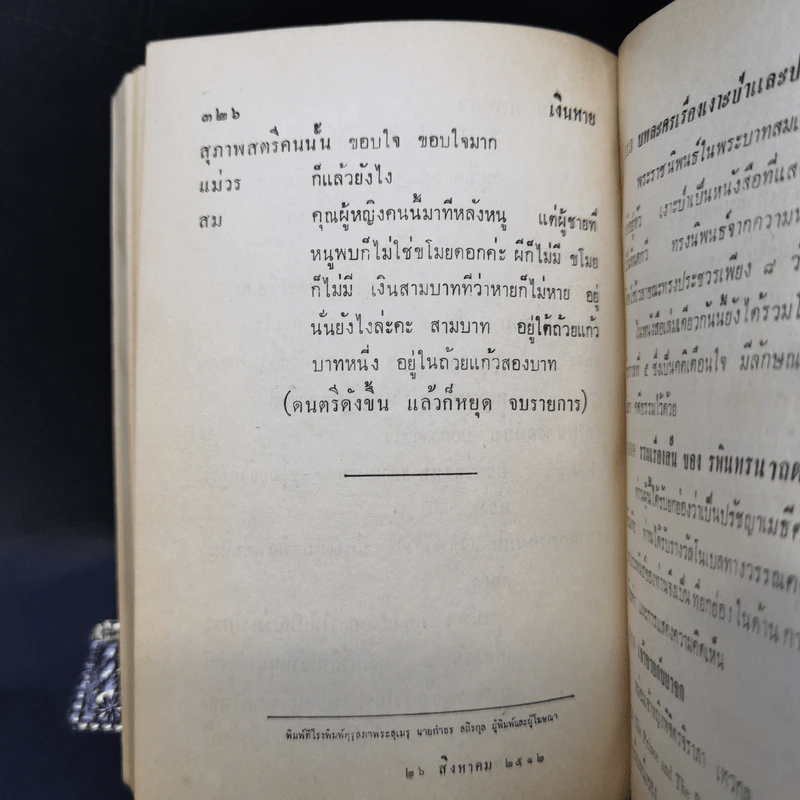 ๓๒๖ เงินหาย
สุภาพสตรีคนนั้น ขอบใจ ขอบใจมาก
แม่วร ก็แล้วยังไง
สม คุณผู้หญิงคนนี้มาทีหลังหนู แต่ผู้ชายที่
หนูพบก็ไม่ใช่ขโมยดอกค่ะ ผีก็ไม่มี ขโมย
ก็ไม่มี เงินสามบาทที่ว่าหายก็ไม่หาย อยู่
นั่นยังไงล่ะคะ สามบาท อยู่ใต้ถ้วยแก้ว
บาทหนึ่ง อยู่ในถ้วยแก้วสองบาท
(ดนตรีดังขึ้น แล้วก็หยุด จบรายการ)
พิมพ์ที่โรงพิมพ์คุรุสภาพระสุเมรุ นายกำธร สถิรกุล ผู้พิมพ์และผู้โฆษณา
๒๖ สิงหาคม ๒๕๑๒
บทละครเรื่องเงาะป่าและ
พระราชนิพนธ์ในพระบาทสม
เงาะป่าเป็นหนังสือที่แส
ทรงนิพนธ์จากความ
ทรงประชวรเพียง ๘
ในหนังสือเล่มเดียวกันนี้ยังได้รวม
ที่ ๕ ซึ่งเป็นคติเตือนใจ มีลักษณ
คติธรรมไว้ด้วย
รวมเรื่องสั้น ของ รพินทรนาถ
ท่านผู้นี้ได้รับยกย่องว่าเป็นปรัชญาเมธี
ท่านได้รับรางวัลโนเบลทางวรรณค
ของท่านจึงเป็นที่ยกย่องในด้าน
และการแสดงความคิดเห็น
The Prince and The